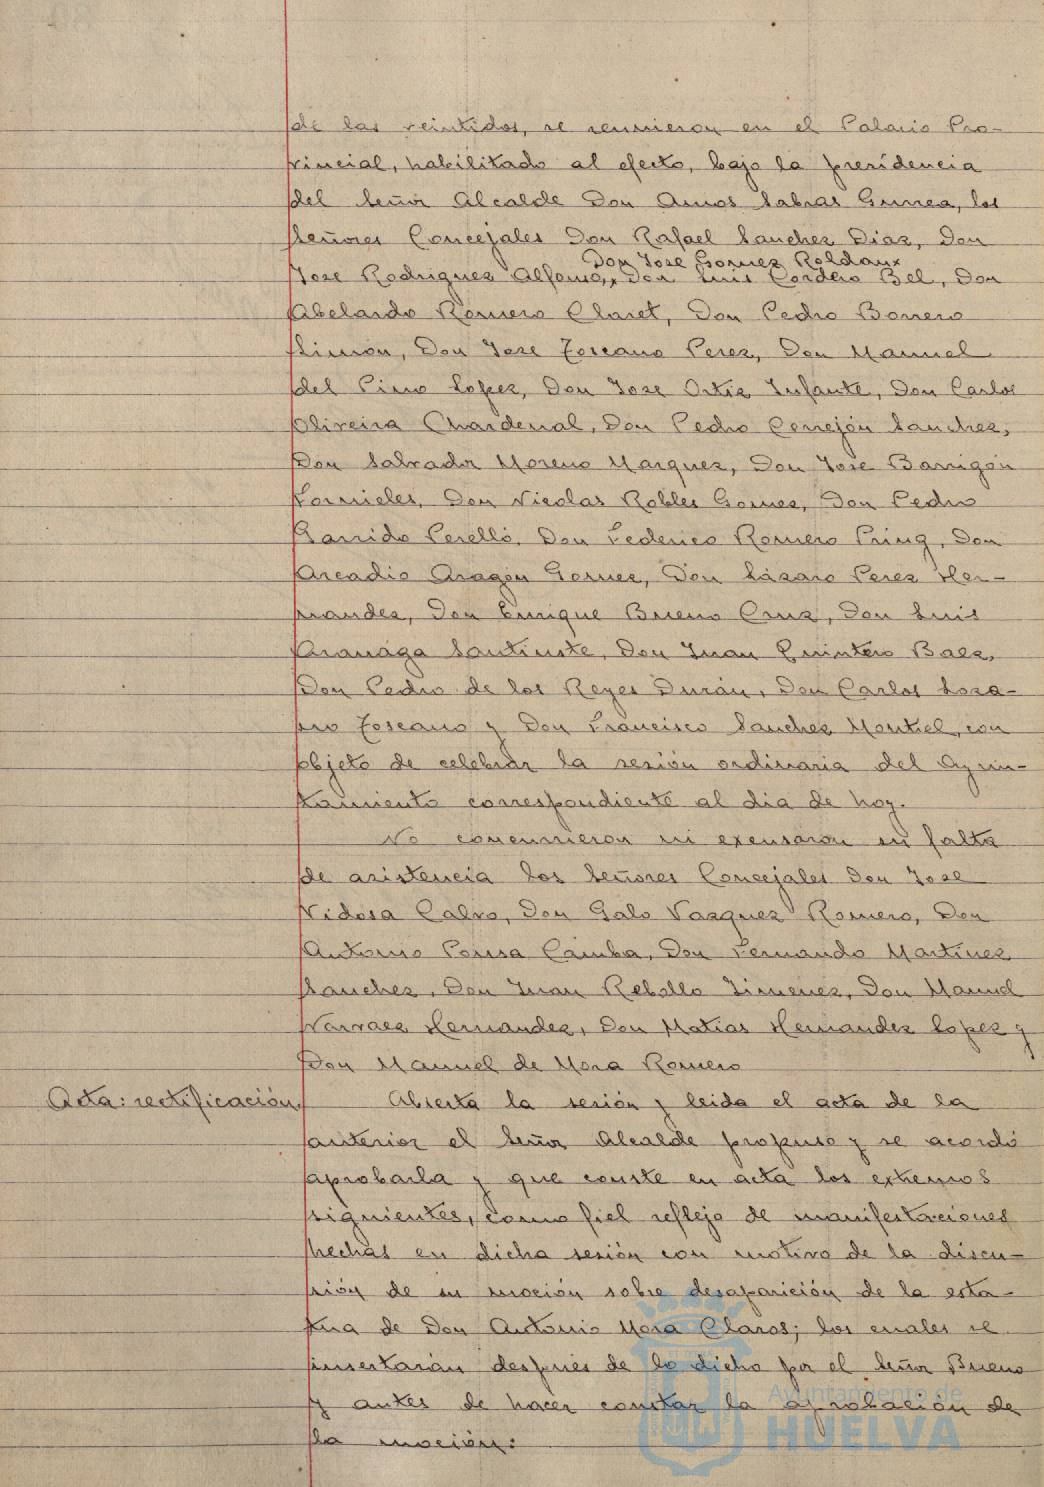 de las veintidos, se reunieron en el Palacio Pro-
vincial, habilitado al efecto, bajo la presidencia
del Señor Alcalde Don Amos Sabras Gurrea, los
Señores Concejales Don Rafael Sanchez Diaz, Don
Don Jose Gomez Roldan x
Jose Rodriguez Alfonso, x Don Luis Cordero Bel, Don
Abelardo Romero Claret, Don Pedro Borrero
Limon, Don Jose Toscano Perez, Don Manuel
del Pino Lopez, Don Jose Ortiz Infante, Don Carlos
Oliveira Chardenal, Don Pedro Cerrejón Sanchez,
Don Salvador Moreno Marquez, Don Jose Barrigón
Fornieles, Don Nicolas Robles Gomez, Don Pedro
Garrido Perelló, Don Federico Romero Pring, Don
Arcadio Aragón Gomez, Don Lázaro Perez Her-
nandez, Don Enrique Bueno Cruz, Don Luis
Aranaga Santiuste, Don Juan Quintero Baez,
Don Pedro de los Reyes Durán, Don Carlos Loza-
no Toscano y Don Francisco Sanchez Montiel, con
objeto de celebrar la sesión ordinaria del Ayun-
tamiento correspondiente al dia de hoy.
No concurrieron ni excusaron su falta
de asistencia los Señores Concejales Don Jose
Nidosa Calvo, Don Galo Vazquez Romero, Don
Antonio Pousa Camba, Don Fernando Martinez
Sanchez, Don Juan Rebollo Jimenez, Don Manuel
Narvaez Hernandez, Don Matias Hernandez Lopez y
Don Manuel de Mora Romero
Acta: rectificación. Abierta la sesión y leida el acta de la
anterior el Señor Alcalde propuso y se acordó
aprobarla y que conste en acta los extremos
siguientes, como fiel reflejo de manifestaciones
hechas en dicha sesión con motivo de la discu-
sión de su moción sobre desaparición de la esta-
tua de Don Antonio Mora Claros; los cuales se
insertarán despues de lo dicho por el Señor Bueno
y antes de hacer constar la aprobación de
la moción:
Ayuntamiento de
HUELVA